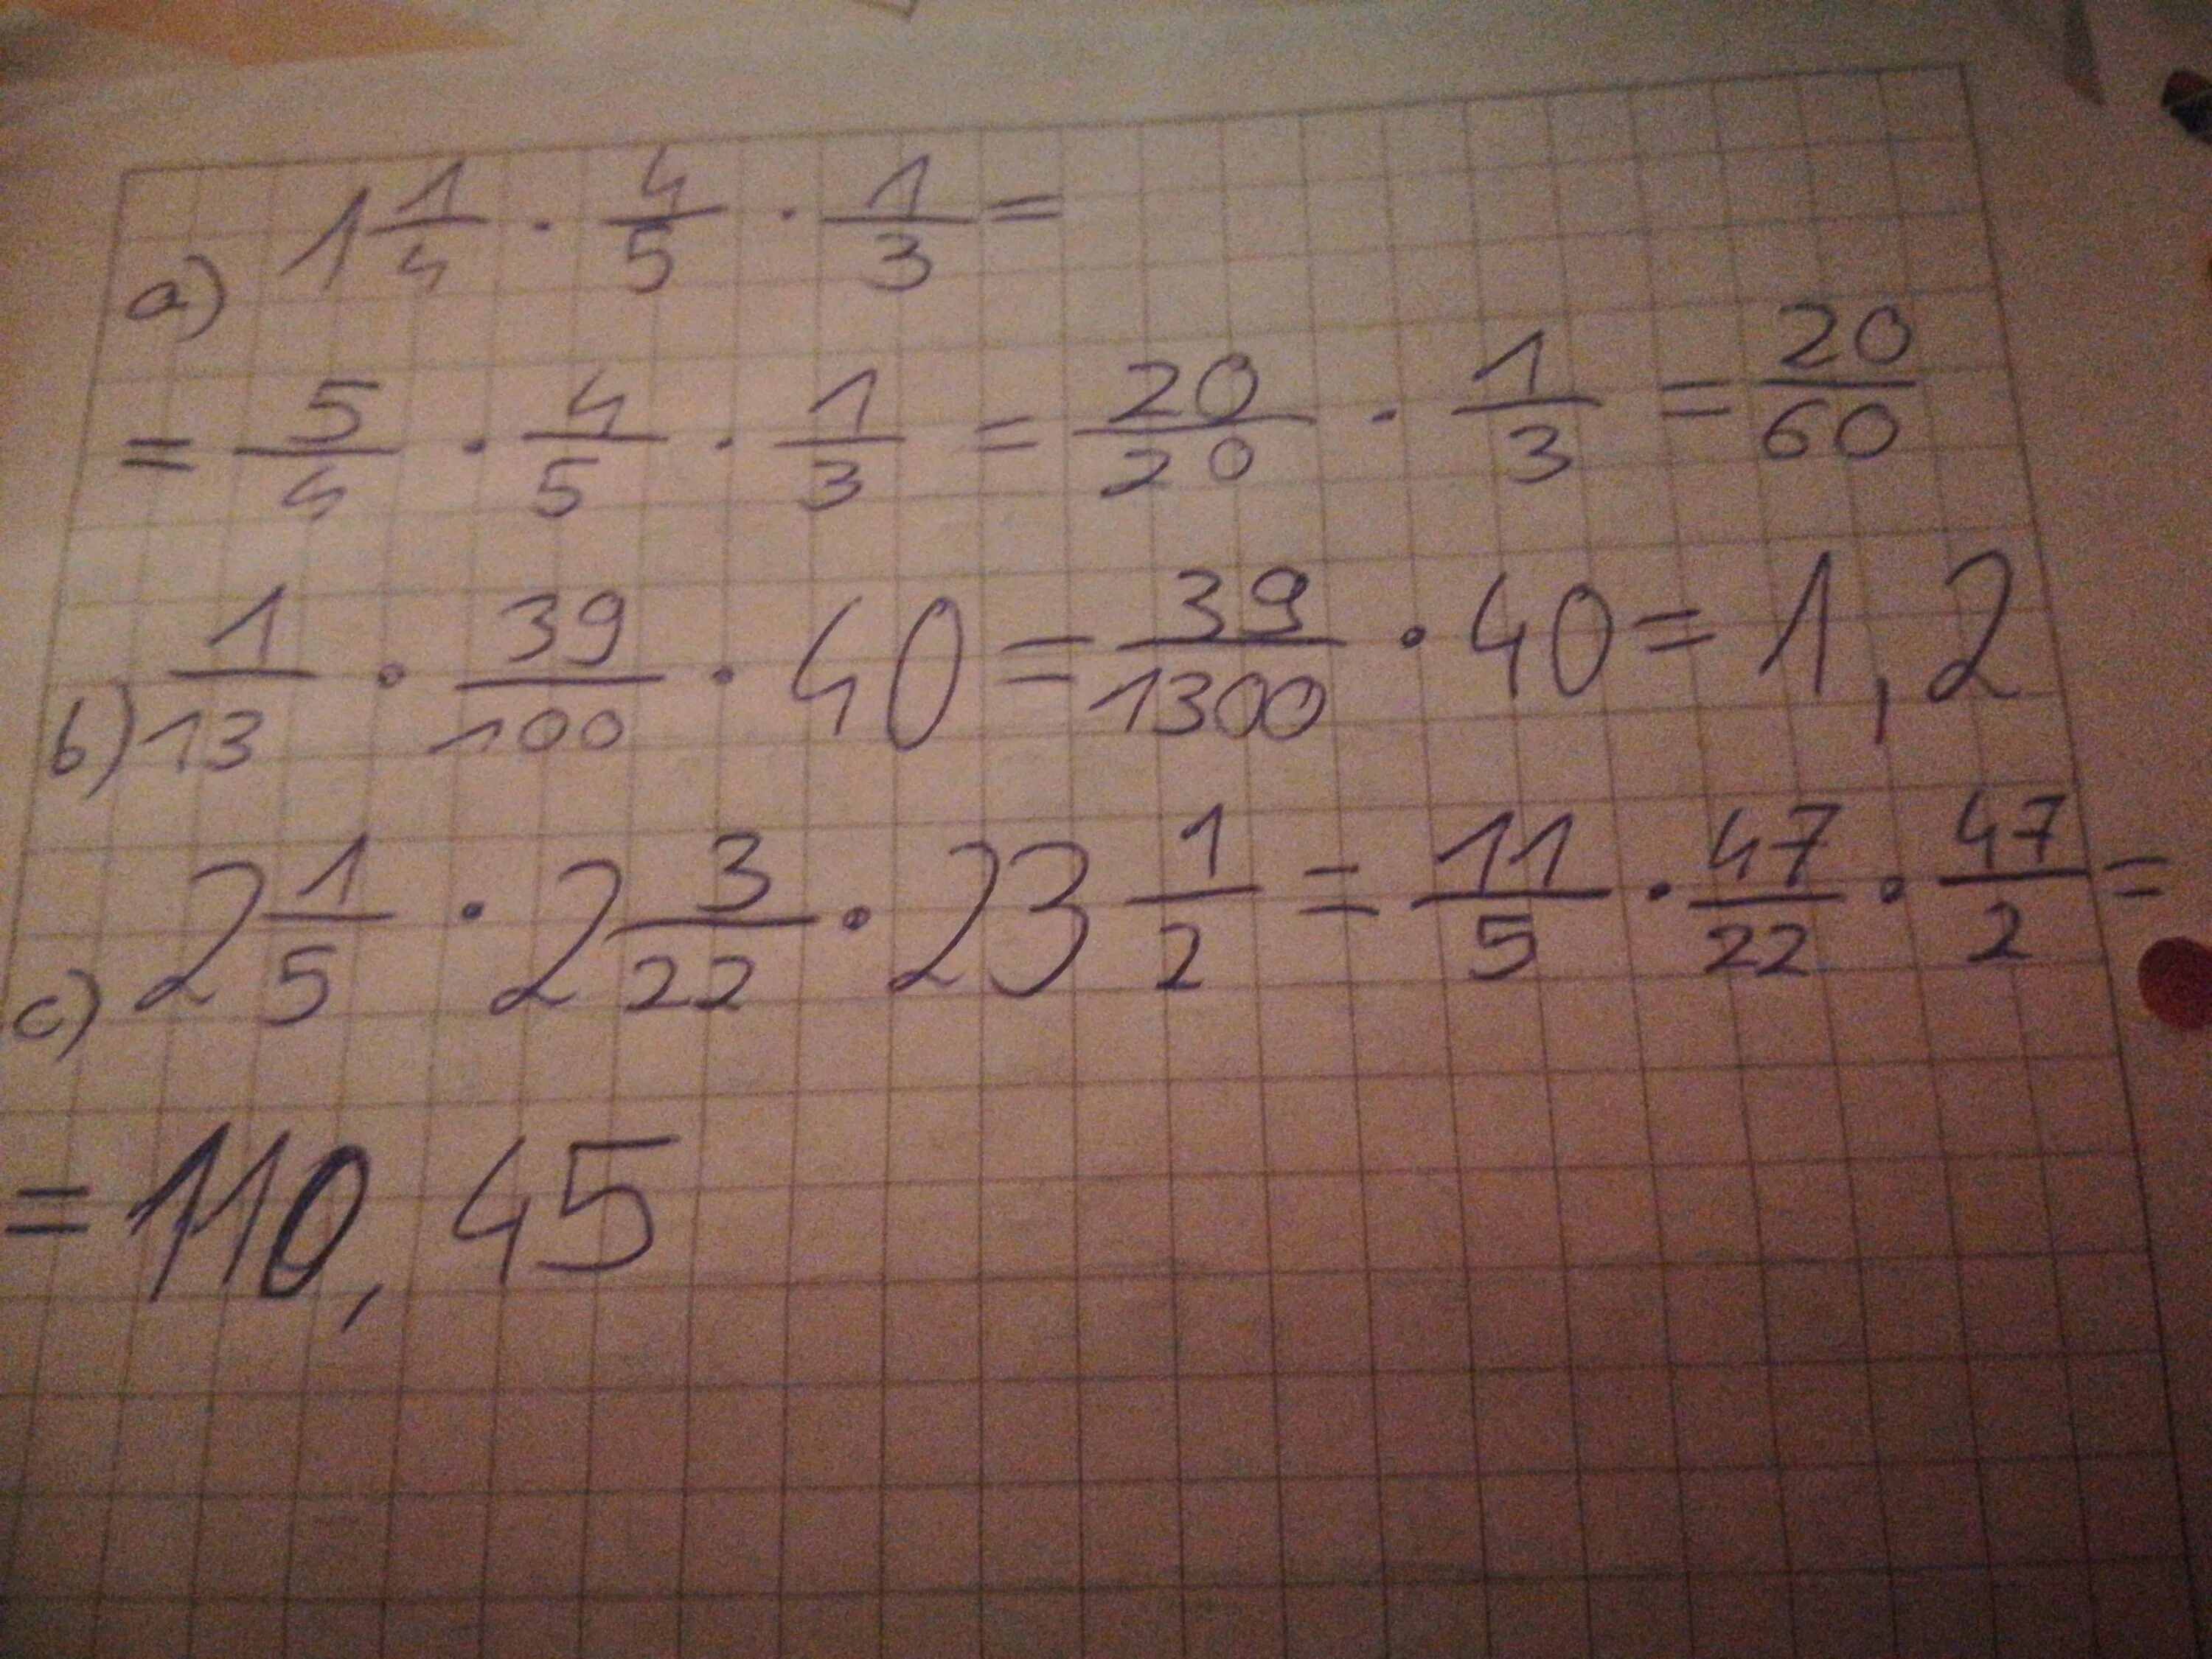 a) 1 1/4 · 4/5 · 1/3 =
= 5/4 · 4/5 · 1/3 = 20/20 · 1/3 = 20/60
b) 1/13 · 39/100 · 40 = 39/1300 · 40 = 1,2
c) 2 1/5 · 2 3/22 · 23 1/2 = 11/5 · 47/22 · 47/2 =
= 110,45